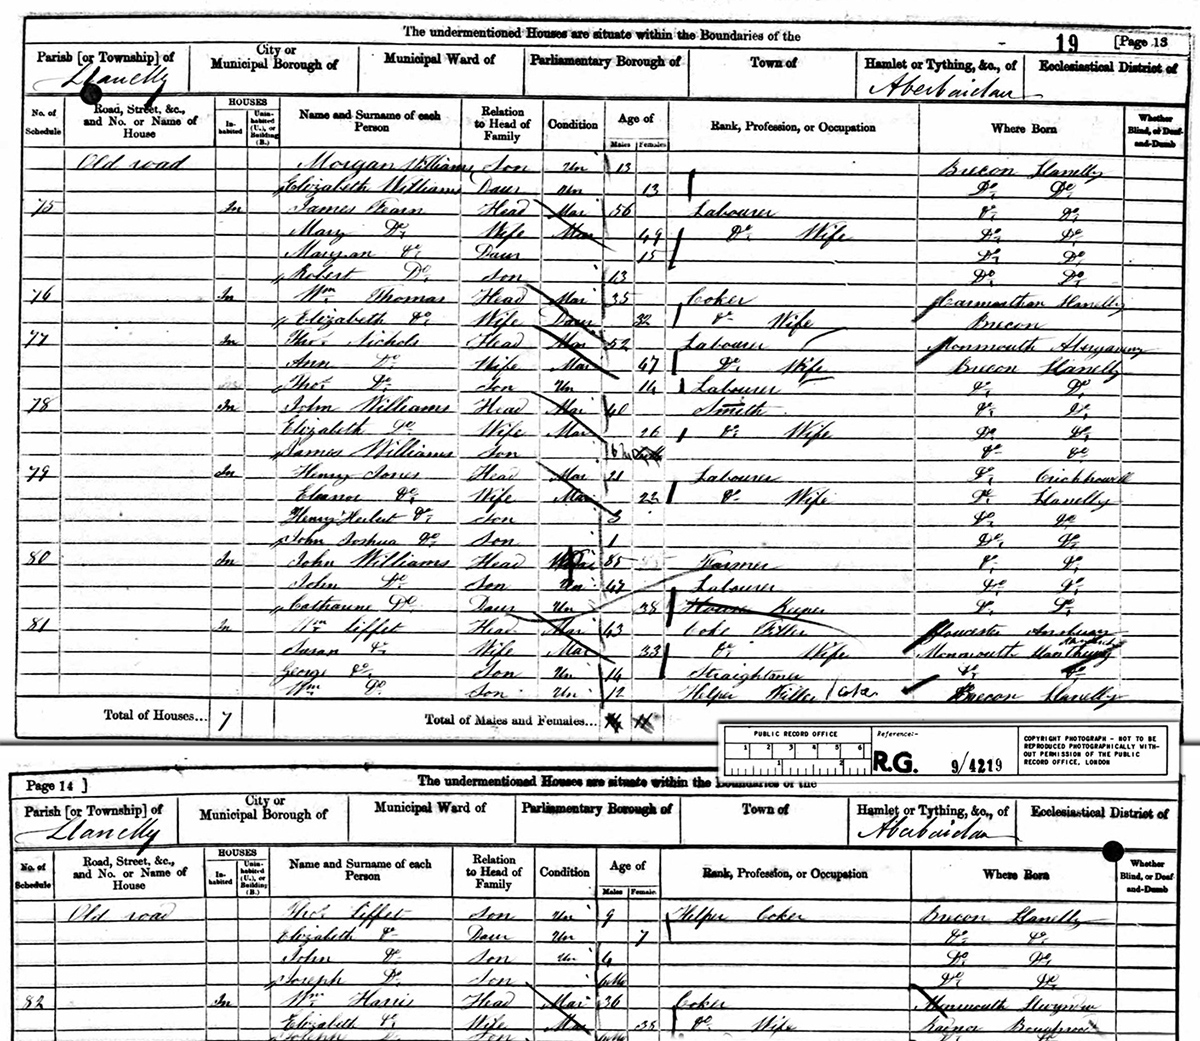 The undermentioned Houses are situate within the Boundaries of the
19 [Page 13
Parish [or Township] of City or Municipal Borough of Municipal Ward of Parliamentary Borough of Town of Hamlet or Tything, &c., of Ecclesiastical District of
Llanelly Aberbaidan
No. of Schedule Road, Street, &c., and No. or Name of House HOUSES Inhabited Uninhabited (U.), or Building (B.) Name and Surname of each Person Relation to Head of Family Condition Age of Males Females Rank, Profession, or Occupation Where Born Whether Blind, or Deaf-and-Dumb
Old road Morgan Williams Son Un 13 Brecon Llanelly
Elizabeth Williams Daur Un 13 Do Do
75 In James Fearn Head Mar 56 Labourer Do Do
Mary Do Wife Mar 49 Do Wife Do Do
Maryan Do Daur 15 Do Do
Robert Do Son 13 Do Do
76 In Wm Thomas Head Mar 35 Coker Carmarthan Llanelly
Elizabeth Do Wife 32 Do Wife Brecon
77 In Thos Nichols Head Mar 52 Labourer Monmouth
Ann Do Wife Mar 47 Do Wife Brecon Llanelly
Thos Do Son Un 14 Labourer Do Do
78 In John Williams Head Mar 40 Smith Do Do
Elizabeth Do Wife Mar 26 Do Wife Do Do
James Williams Son Do Do
79 In Henry Jones Head Mar 21 Labourer Do Crickhowell
Eleanor Do Wife Mar 22 Do Wife Do Llanelly
Henry Herbert Do Son 3 Do Do
John Joshua Do Son 1 Do Do
80 In John Williams Head 85 Farmer Do Do
John Do Son Un 47 Labourer Do Do
Catharine Do Daur Un 38 House Keeper Do Do
81 In Wm Tiffet Head Mar 43 Coke Filler Gloucester
Sarah Do Wife Mar 33 Do Wife Monmouth
George Do Son Un 14 Straightner Do Do
Wm Do Son Un 12 Helper Filler Coke Brecon Llanelly
Total of Houses... 7 Total of Males and Females...
PUBLIC RECORD OFFICE
1 2 3 4 5 6
1 2
Reference:-
R.G. 9/4219
COPYRIGHT PHOTOGRAPH - NOT TO BE REPRODUCED PHOTOGRAPHICALLY WITHOUT PERMISSION OF THE PUBLIC RECORD OFFICE, LONDON
Page 14 ]
The undermentioned Houses are situate within the Boundaries of the
Parish [or Township] of City or Municipal Borough of Municipal Ward of Parliamentary Borough of Town of Hamlet or Tything, &c., of Ecclesiastical District of
Llanelly Aberbaidan
No. of Schedule Road, Street, &c., and No. or Name of House HOUSES Inhabited Uninhabited (U.), or Building (B.) Name and Surname of each Person Relation to Head of Family Condition Age of Males Females Rank, Profession, or Occupation Where Born Whether Blind, or Deaf-and-Dumb
Old road Thos Tiffet Son Un 9 Helper Coker Brecon Llanelly
Elizabeth Do Daur Un 7 Do Do
John Do Son Un 4 Do Do
Joseph Do Son 6Mo Do Do
82 In Wm Harris Head Mar 36 Coker Monmouth
Elizabeth Do Wife Mar 35 Do Wife